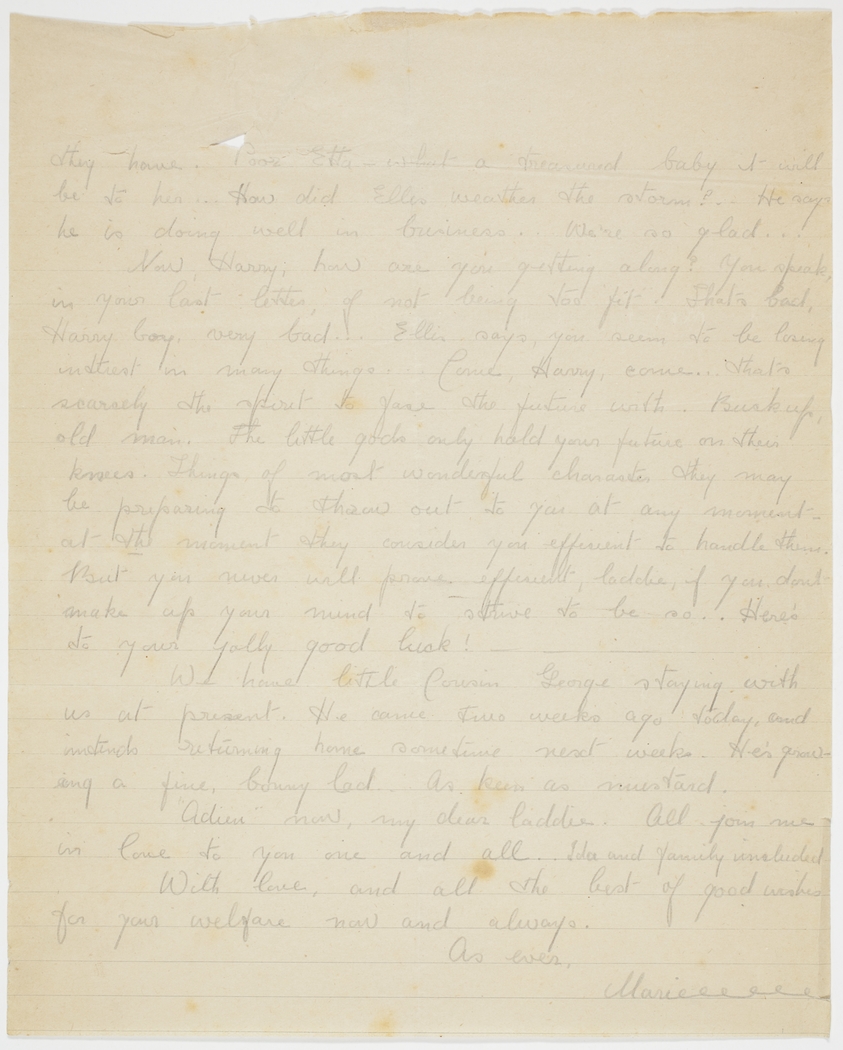 they have. Poor Etta - what a treasured baby it will
be to her... How did Ellis weather the storm?.. He says
he is doing well in business.. We're so glad...
Now, Harry, how are you getting along? You speak,
in your last letter, of not being too fit. That's bad,
Harry boy, very bad!.. Ellis says, you seem to be losing
intrest in many things... Come, Harry, come... that's
scarsely the spirit to face the future with. Buck up,
old man. The little gods only hold your future on their
knees. Things of most wonderful character they may
be preparing to throw out to you at any moment -
at the moment they consider you efficient to handle them.
But you never will prove efficient, laddie, if you don't
make up your mind to strive to be so.. Here's
to your jolly good luck! -
We have little Cousin George staying with
us at present. He came two weeks ago today, and
intends returning home sometime next week. He's grow-
ing a fine, bonny lad.. As keen as mustard.
"Adieu" now, my dear laddie. All join me
in love to you one and all.. Ida and family included
With love, and all the best of good wishes
for your welfare now and always.
As ever,
Marie